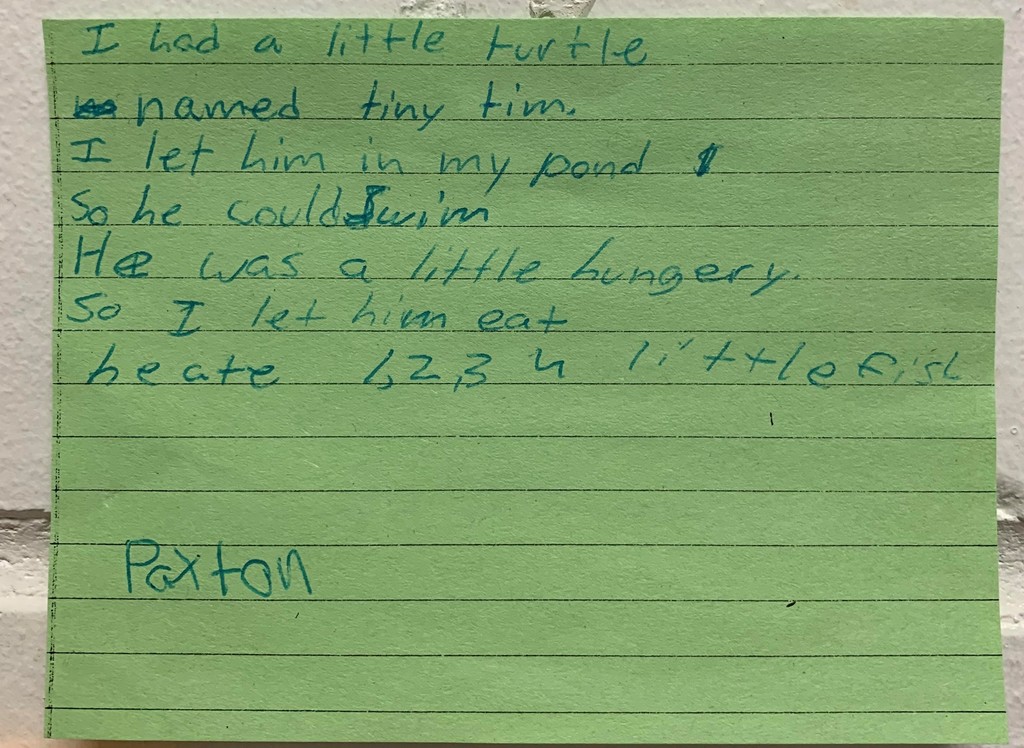 I had a little turtle
named tiny tim.
I let him in my pond
So he could Swim
He was a little hungery.
So I let him eat
he ate 1,2,3 4 little fish
Paxton